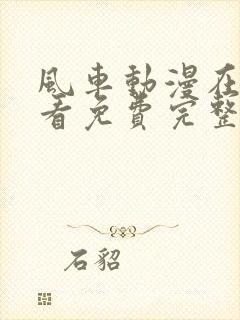 風車動漫在
看免費完整
石貂